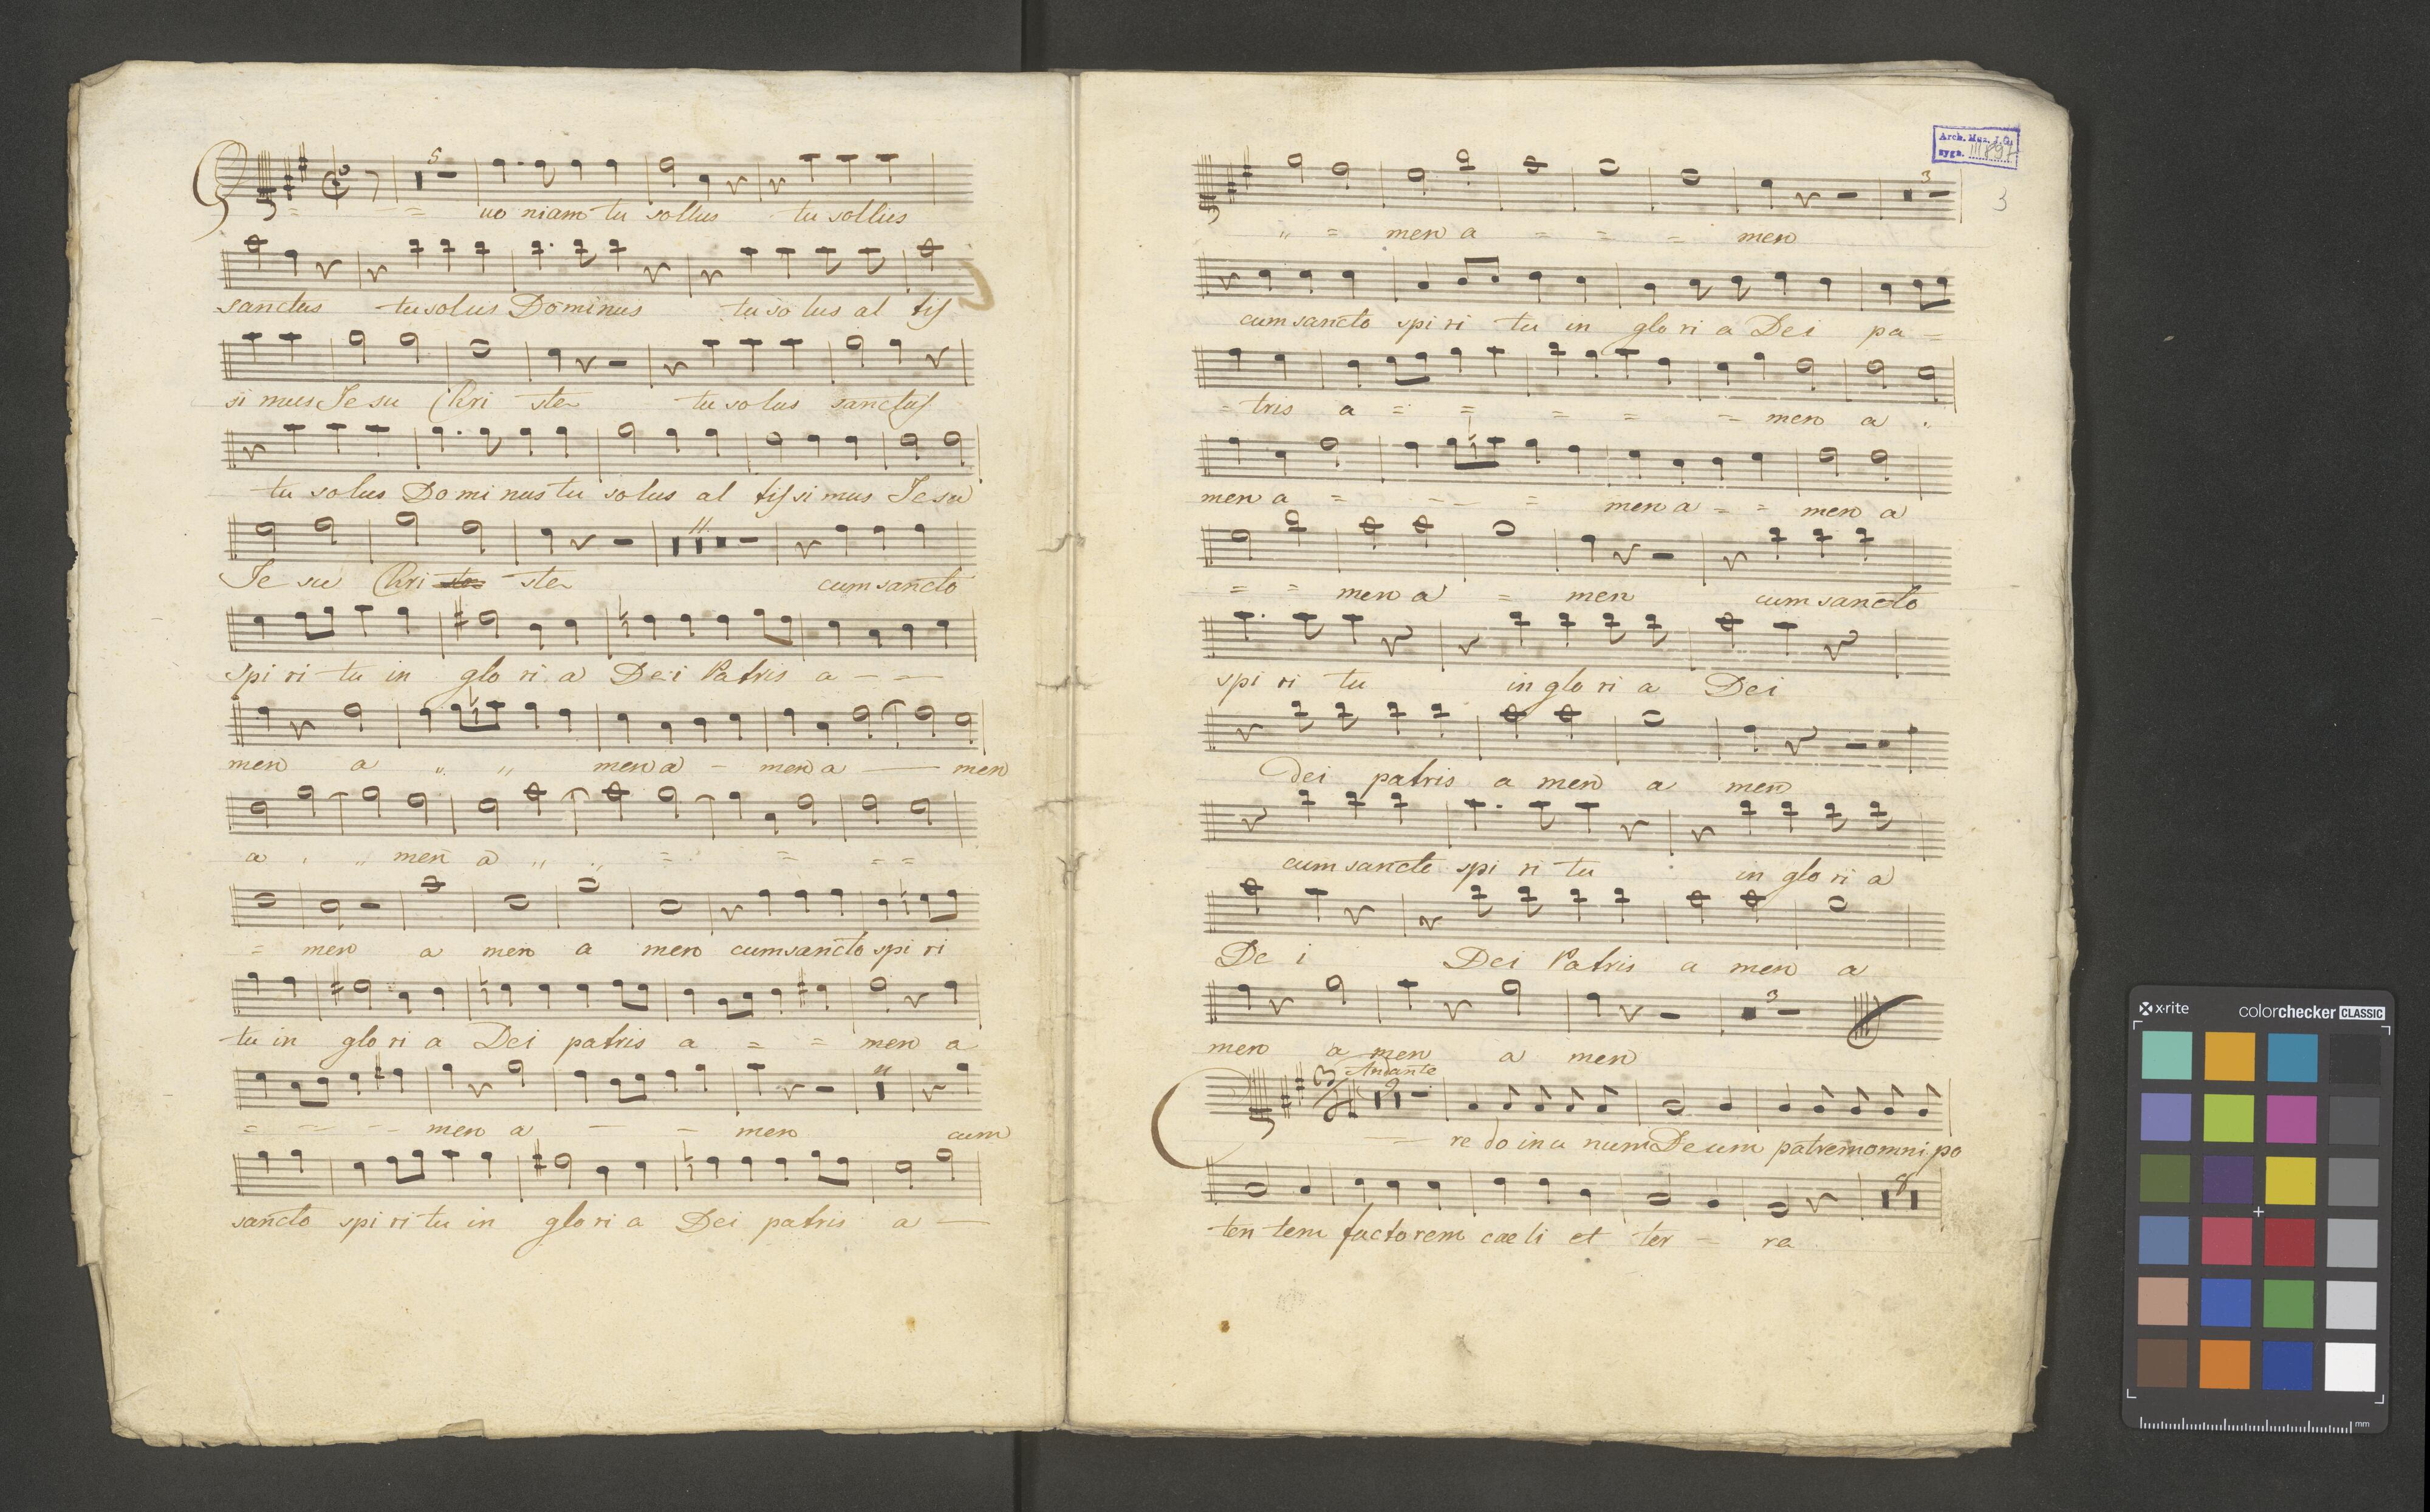 5
Quo niam tu sollus tu sollus
sanctus tu solus Dominus tu so lus al tis
si mus Je su Chri ste tu solus sanctus
tu solus Do mi nus tu solus al tissi mus Jesu
11
Je su Chri ste cum sancto
spi ri tu in glo ri a De i Patris a
men a men a men a men
a men a
men a men a men cum sancto spi ri
tu in glo ri a Dei patris a men a
men a men cum
sancto spi ri tu in glo ri a Dei patris a
Arch. Mus. J. G.
sygn. III 897
3
3
men a men
cum sancto spi ri tu in glo ri a Dei pa
tris a men a
men a men a men a
men a men cum sancto
spi ri tu in glo ri a Dei
Dei patris a men a men
cum sancte spi ri tu in glo ri a
De i Dei Patris a men a
3
men a men a men
3/4 Andante
9
Cre do in u num Deum patrem omni po
8
ten tem factorem cae li et ter ra
x-rite
colorchecker CLASSIC
mm